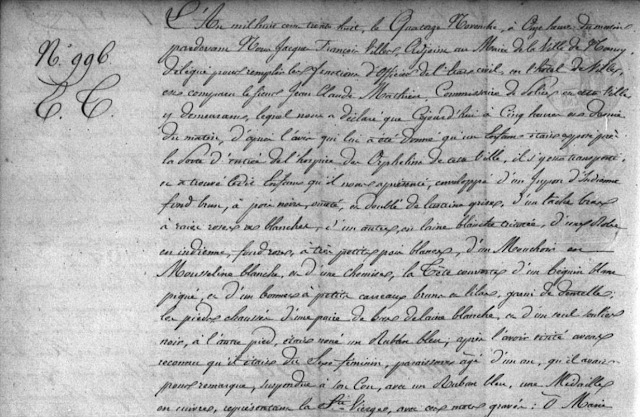 N.° 996.
E. C.
L'An mil huit cent trente huit, le Quatorze Novembre, à Onze heures du matin,
pardevant Nous Jacques François Villers, Adjoint au Maire de la Ville de Nancy
délégué pour remplir les fonctions d'Officier de l'Etat civil, en l'hôtel de Ville,
est comparu le sieur Jean Claude Mathieu, Commissaire de police en cette Ville
y demeurant, lequel nous a déclaré que Aujourd'hui à Cinq heures et demie
du matin, d'après l'avis qui lui a été donné qu'un Enfant était exposé près
la Porte d'entrée de l'hospice des Orphelins de cette Ville, il s'y est transporté
et a trouvé ledit Enfant qu'il nous a présenté, enveloppé d'un Jupon d'Indienne
fond brun, à pois noirs, ouaté, et doublé de grise, d'un lâche bras
à raies roses et blanches, d'un autre, en laine blanche tricotée, d'une Robe
en indienne, fond rose, à très petits pois blancs, d'un Mouchoir en
Mousseline blanche, et d'une chemise, la Tête couverte d'un béguin blanc
piqué, et d'un bonnet à petits carreaux bruns et lilas, garni de dentelle;
les pieds chaussés d'une paire de bas de laine blanche, et d'un seul soulier
noir, à l'autre pied, était noué un Ruban bleu; après l'avoir visité avons
reconnu qu'il était du Sexe féminin, paraissant âgé d'un an, qu'il avait
pour remarque, suspendue à son Cou, avec un Ruban bleu, une Médaille
en cuivre, représentant la Ste. Vierge, avec ces mots gravés: O Marie